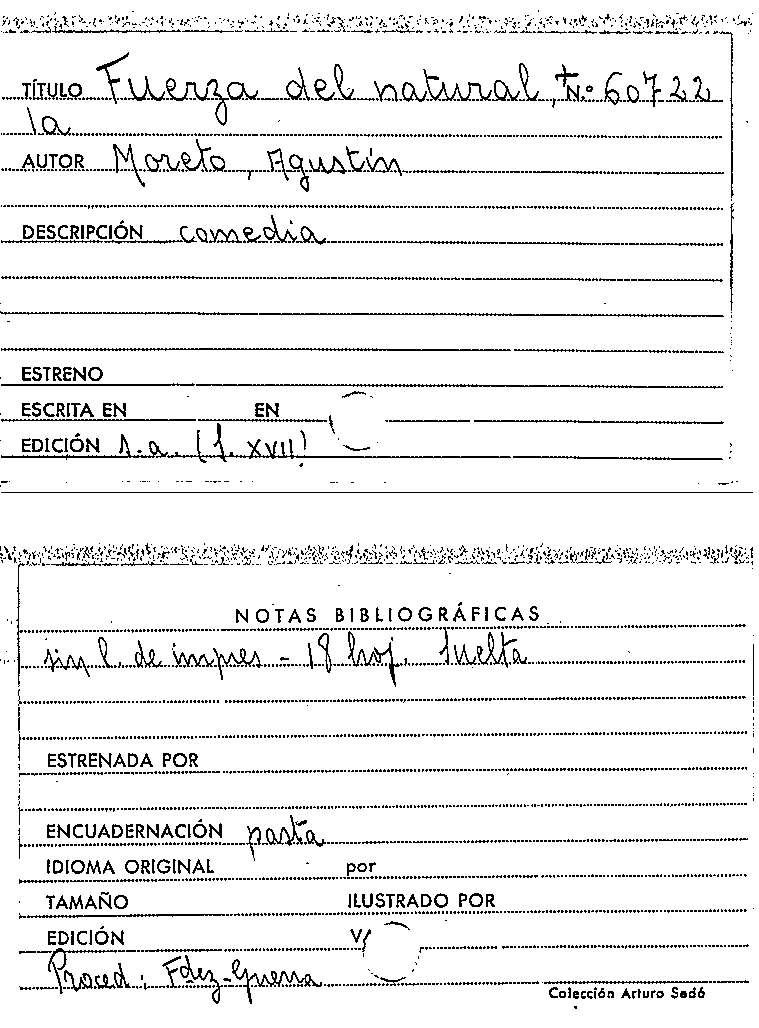 TÍTULO Fuerza del natural, + N.º 60722
la
AUTOR Moreto, Agustín
DESCRIPCIÓN comedia
ESTRENO
ESCRITA EN EN
EDICIÓN s.a. (s. XVII)
NOTAS BIBLIOGRÁFICAS
sin l. de impres - 18 hoj. Suelta
ESTRENADA POR
ENCUADERNACIÓN pasta
IDIOMA ORIGINAL por
TAMAÑO ILUSTRADO POR
EDICIÓN V/
Proced: Fdez-Guerra
Colección Arturo Sedó